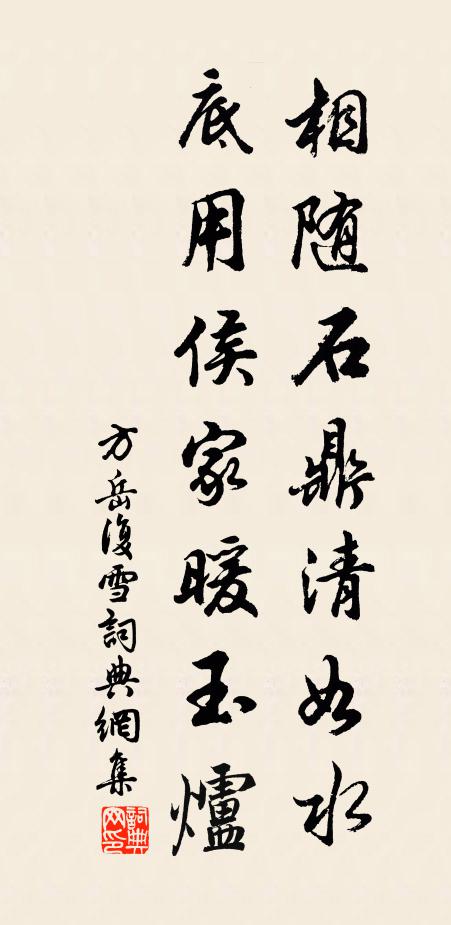 相随石鼎清如水
底用侯家暖玉爐
方岳復雪詞典網集
詞典網印